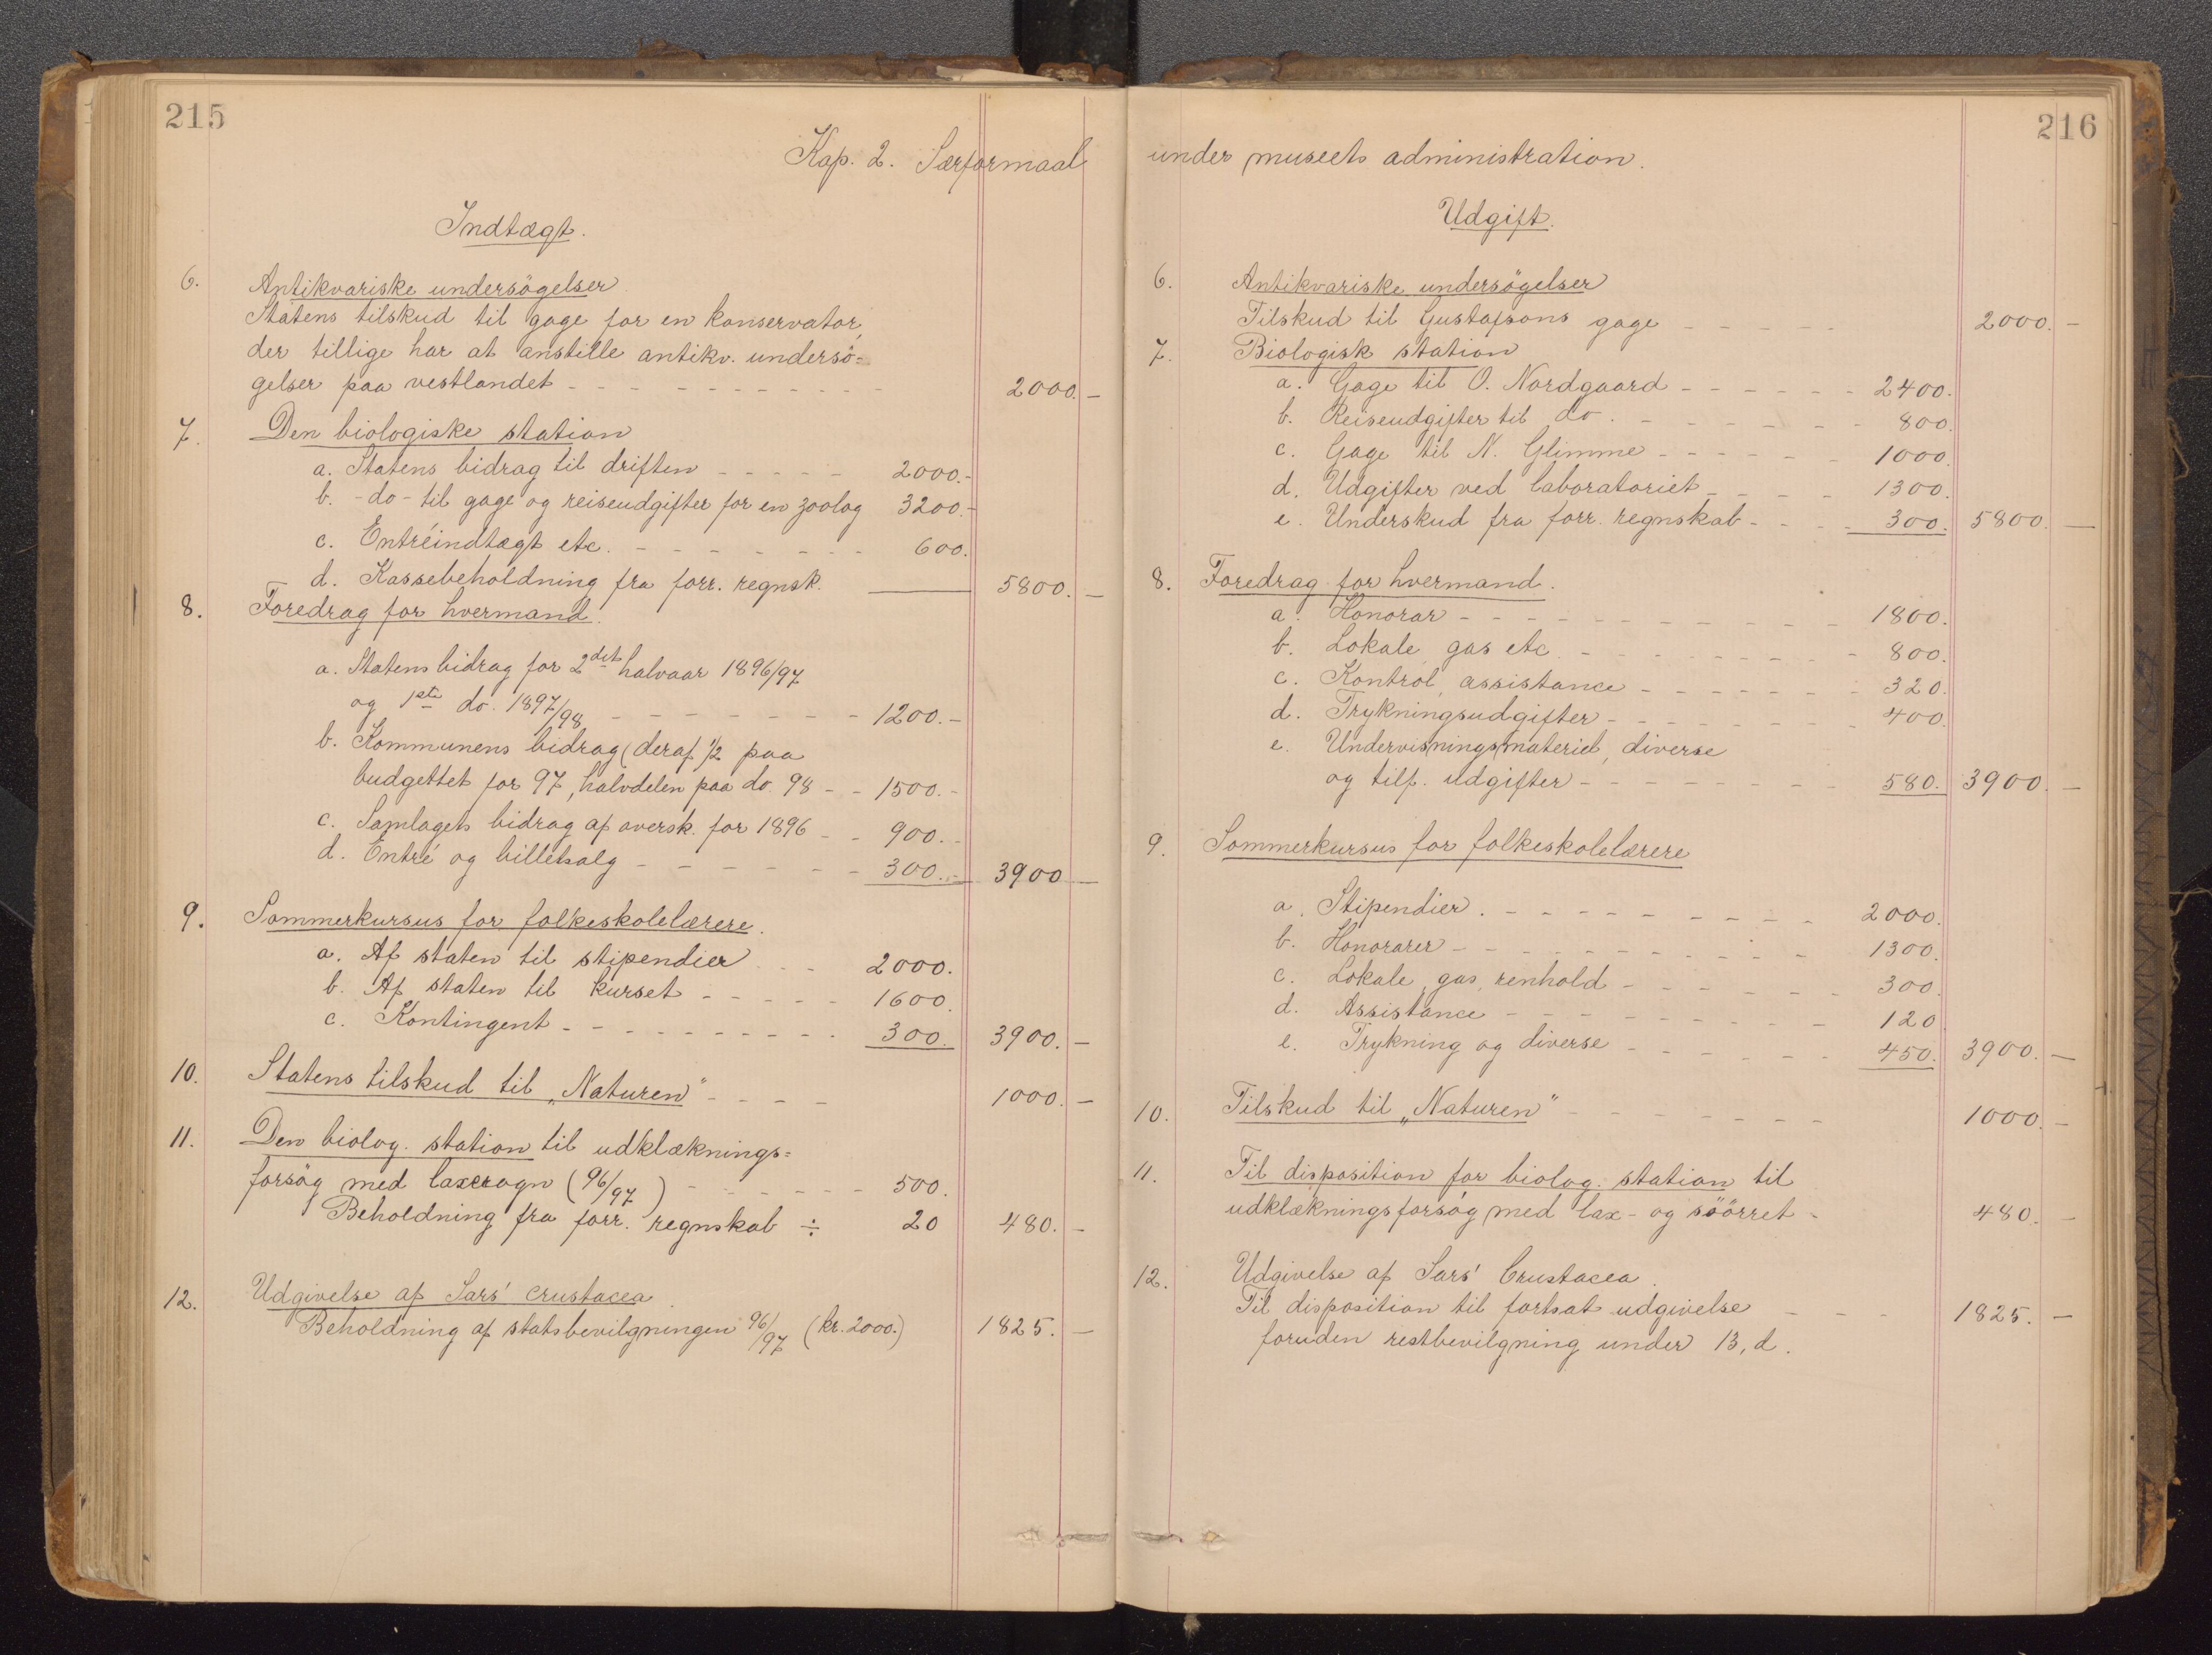 215
Kap. 2. Særformaal
Indtægt.
6. Antikvariske undersögelser
Statens tilskud til gage for en konservator,
der tillige har at anstille antikv. undersö=
gelser paa vestlandet - - - - - - - - - 2000. -
7. Den biologiske station
a. Statens bidrag til driften - - - - - 2000.-
b. -do- til gage og reiseudgifter for en zoolog 3200.-
c. Entréindtægt etc. - - - - - - - 600.
d. Kassebeholdning fra forr. regnsk. 5800. -
8. Foredrag for hvermand.
a. Statens bidrag for 2det halvaar 1896/97
og 1ste do. 1897/98 - - - - - - - 1200.-
b. Kommunens bidrag (deraf 1/2 paa
budgettet for 97, halvdelen paa do. 98 - - 1500.-
c. Samlagets bidrag af oversk. for 1896 - - 900.-
d. Entré og billetsalg - - - - - - 300.- 3900 -
9. Sommerkursus for folkeskolelærere.
a. Af staten til stipendier - - 2000.
b. Af staten til kurset - - - - - 1600
c. Kontingent - - - - - - - - - 300. 3900. -
10. Statens tilskud til „Naturen" - - - - 1000. -
11. Den biolog. station til udklæknings=
forsög med laxerogn (96/97) - - - - - - 500.
Beholdning fra forr. regnskab ÷ 20 480. -
12. Udgivelse af Sars' crustacea.
Beholdning af statsbevilgningen 96/97 (kr. 2000.) 1825. -
216
under museets administration.
Udgift.
6. Antikvariske undersögelser
Tilskud til Gustafsons gage - - - - - 2000. -
7. Biologisk station
a. Gage til O. Nordgaard - - - - - - 2400.
b. Reiseudgifter til do. - - - - - - - 800.
c. Gage til N. Glimme - - - - - - 1000.
d. Udgifter ved laboratoriet - - - - 1300.
e. Underskud fra forr. regnskab - - - 300. 5800. -
8. Foredrag for hvermand.
a. Honorar - - - - - - - - - - - 1800.
b. Lokale, gas etc. - - - - - - - - 800.
c. Kontrol, assistance - - - - - - - 320.
d. Trykningsudgifter - - - - - - - - 400.
e. Undervisningsmateriel, diverse
og tilf. udgifter - - - - - - - - 580. 3900. -
9. Sommerkursus for folkeskolelærere
a. Stipendier. - - - - - - - - - 2000.
b. Honorarer - - - - - - - - - - 1300.
c. Lokale, gas, renhold - - - - - - 300.
d. Assistance - - - - - - - - - 120
e. Trykning og diverse - - - - - - 450. 3900. -
10. Tilskud til „Naturen" - - - - - - - 1000. -
11. Til disposition for biolog. station til
udklækningsforsög med lax- og söörret - 480. -
12. Udgivelse af Sars' Crustacea.
Til disposition til fortsat udgivelse - - - 1825. -
foruden restbevilgning under 13, d.